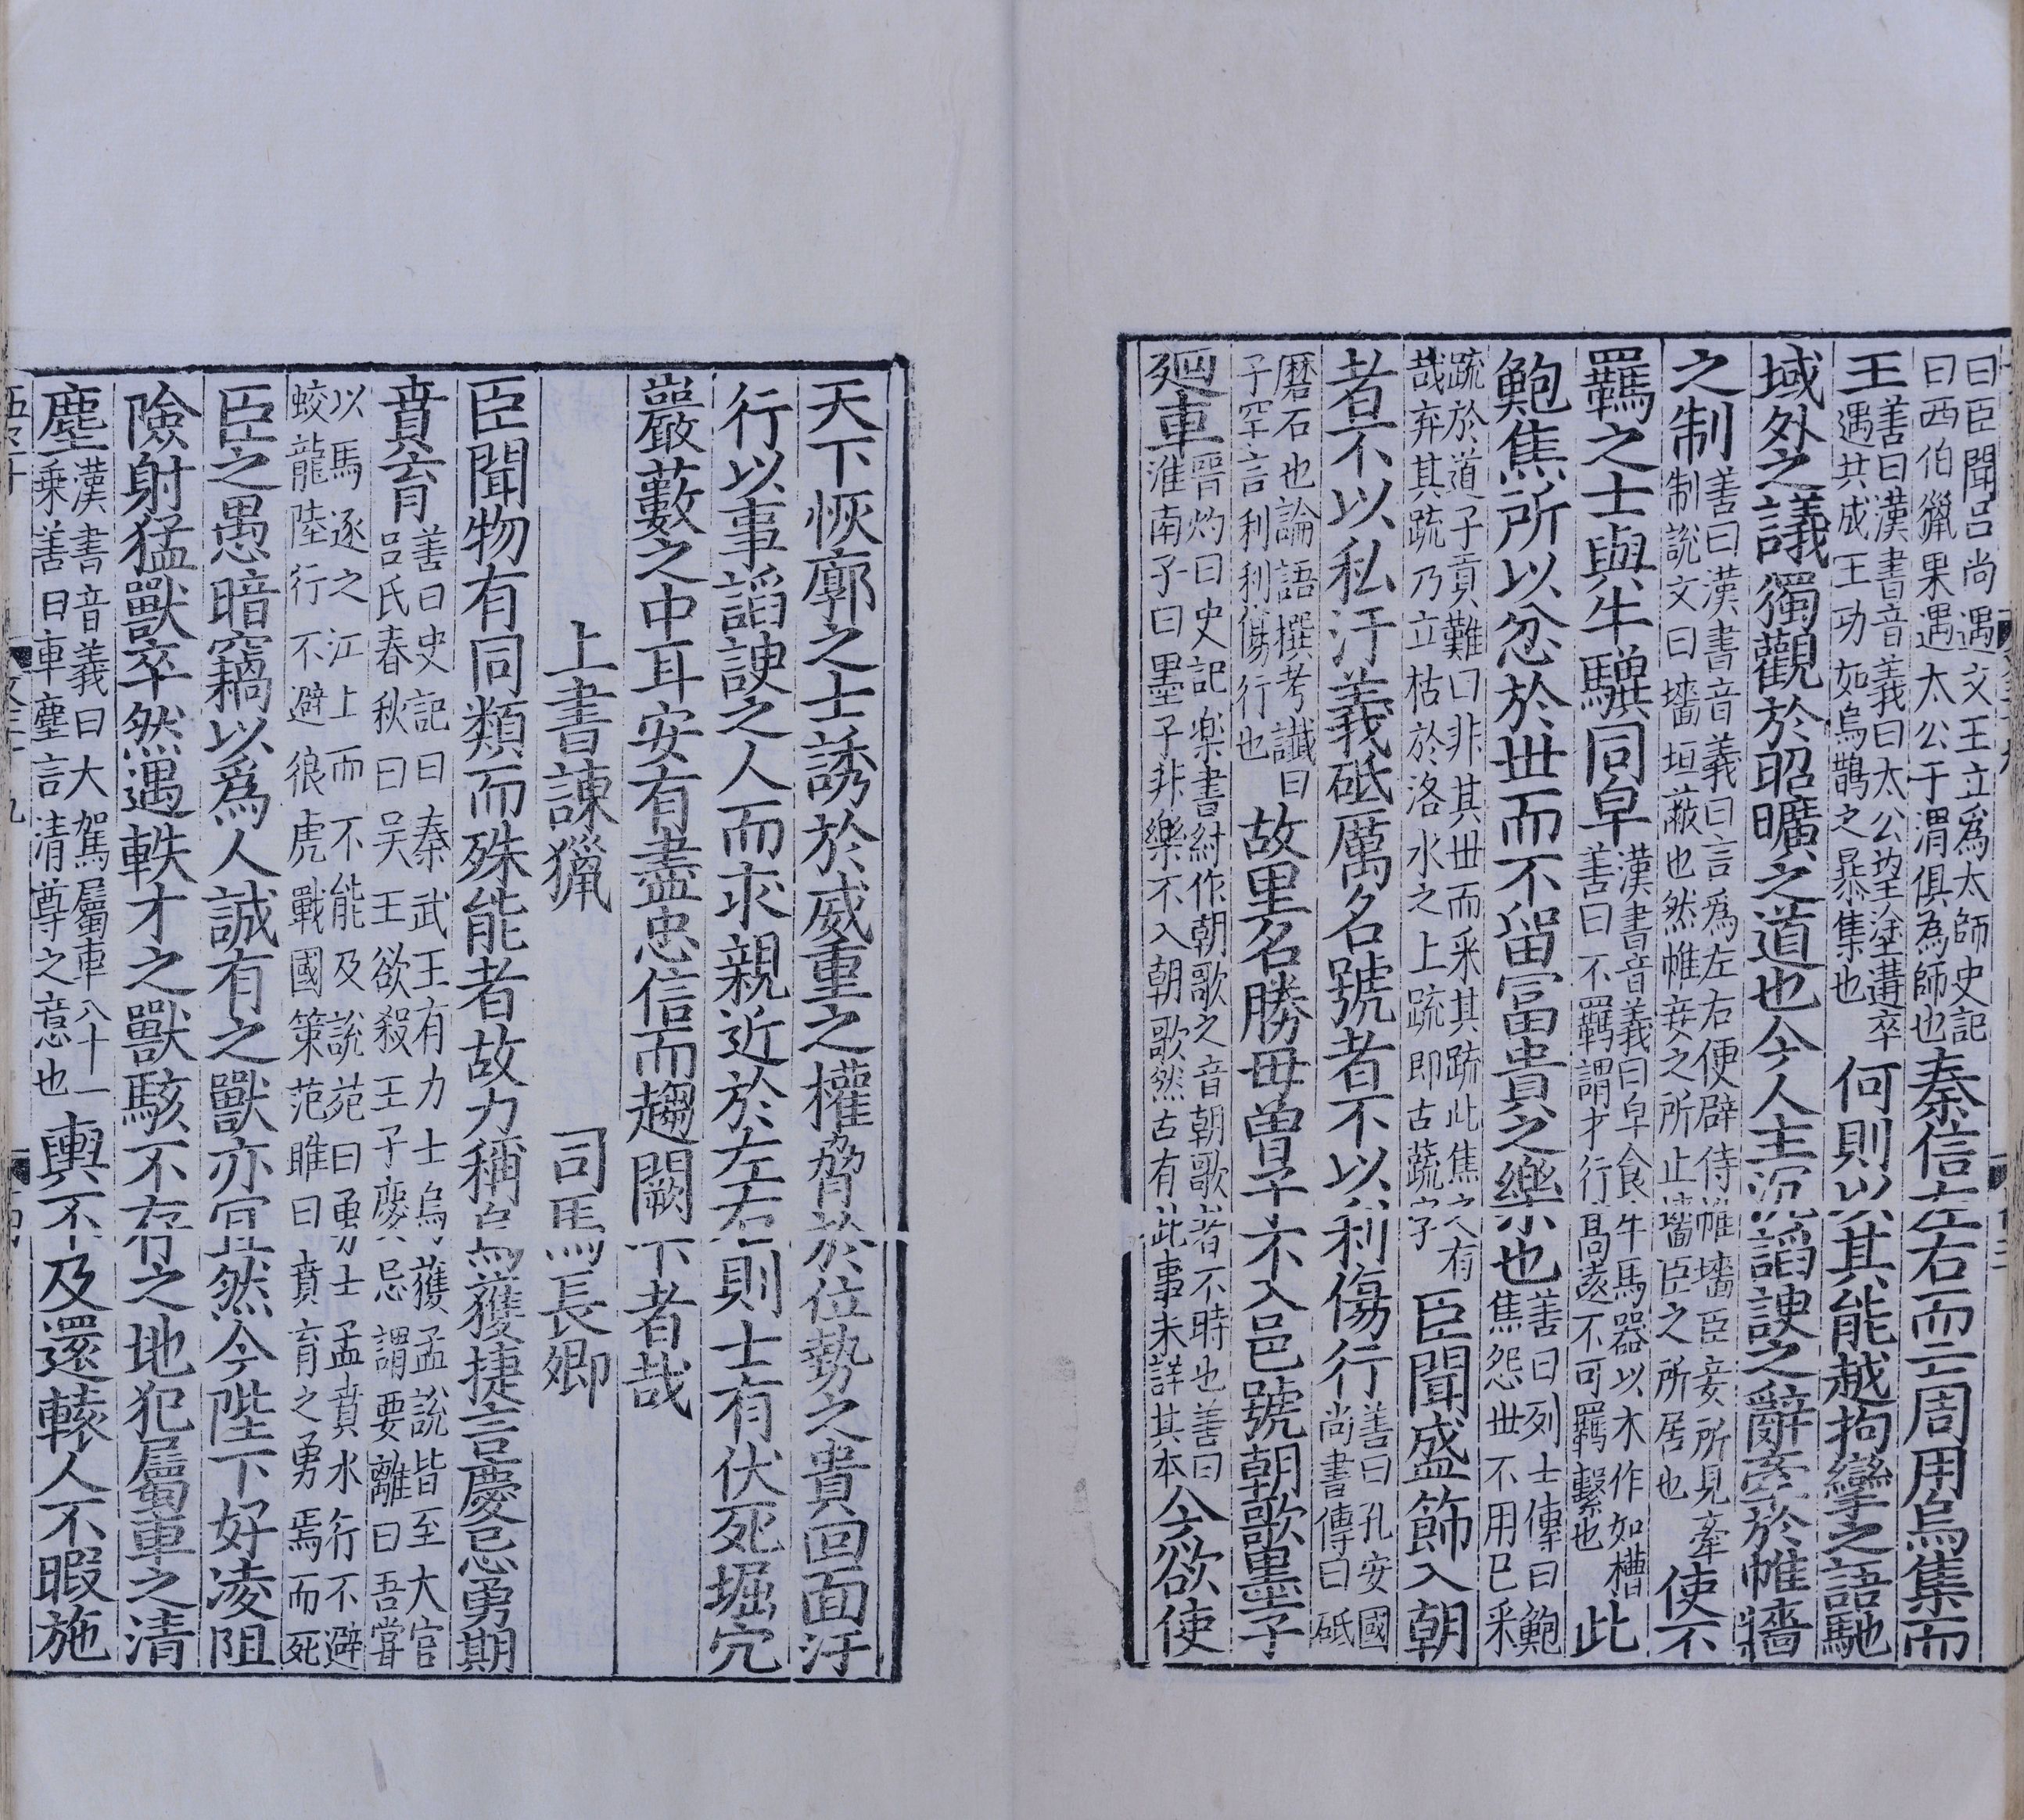 曰臣聞呂尚遇文王立爲太師史記
曰西伯獵果遇太公于渭俱為師也秦信左右而亡周用烏集而
王善曰漢書音義曰太公望塗遘卒
遇共成王功如烏鵲之暴集也何則以其能越拘攣之語馳
域外之議獨觀於昭曠之道也今人主沉諂諛之辭牽於帷牆
之制善曰漢書音義曰言爲左右便辟侍帷牆臣妾所見牽
制說文曰墻垣蔽也然帷妾之所止墻臣之所居也使不
羈之士與牛驥同皁漢書音義曰皁食牛馬器以木作如槽
善曰不羈謂才行高遠不可羈繫也此
鮑焦所以忿於世而不留冨貴之樂也善曰列士傳曰鮑
焦怨世不用已采
疏於道子貢難曰非其世而采其疏此焦之有
哉弃其疏乃立枯於洛水之上疏即古蔬字臣聞盛飾入朝
者不以私汙義砥厲名號者不以利傷行善曰孔安國
尚書傳曰砥
磨石也論語撰考讖曰
子罕言利利傷行也故里名勝毋曾子不入邑號朝歌墨子
廻車晋灼曰史記樂書紂作朝歌之音朝歌者不時也善曰
淮南子曰墨子非樂不入朝歌然古有此事未詳其本今欲使
天下恢廓之士誘於威重之權脅於位勢之貴回面汙
行以事諂諛之人而求親近於左右則士有伏死堀穴
巖藪之中耳安有盡忠信而趨闕下者哉
上書諫獵 司馬長卿
臣聞物有同類而殊能者故力稱烏獲捷言慶忌勇期
賁育善曰史記曰秦武王有力士烏獲孟說皆至大官
呂氏春秋曰吳王欲殺王子慶忌謂要離曰吾甞
以馬逐之江上而不能及說苑曰勇士孟賁水行不避
蛟龍陸行不避狼虎戰國策范雎曰賁育之勇焉而死
臣之愚暗竊以爲人誠有之獸亦冝然今陛下好凌阻
險射猛獸卒然遇軼才之獸駭不存之地犯屬車之清
塵漢書音義曰大駕屬車八十一
乗善曰車塵言清尊之意也輿不及還轅人不暇施